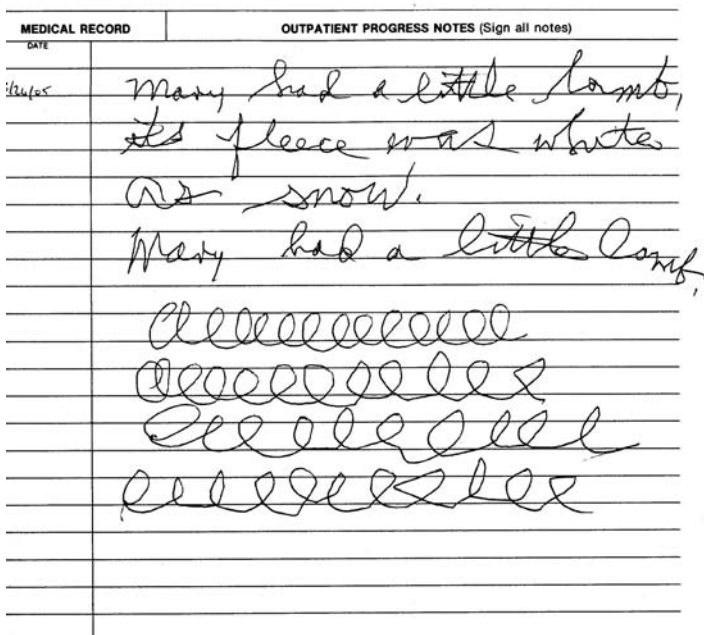 MEDICAL RECORD OUTPATIENT PROGRESS NOTES (Sign all notes)
DATE
Mary had a little lamb,
its fleece was white
as snow.
Mary had a little lamb,